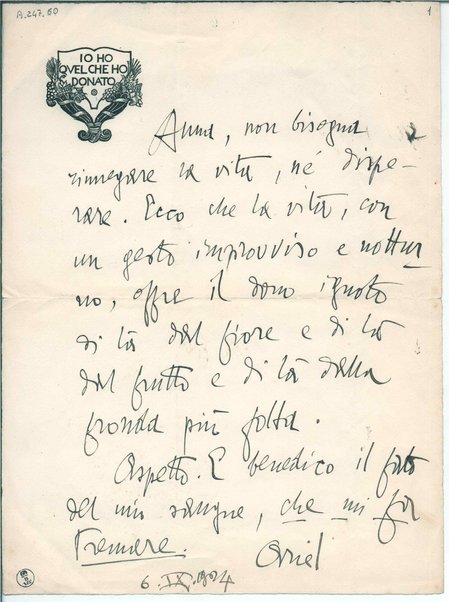 A.247.60
1
IO HO
QVEL CHE HO
DONATO
Anna, non bisogna
rinnegare la vita, né dispe-
rare. Ecco che la vita, con
un gesto improvviso e nottur
no, offre il dono ignoto
di là dal fiore e di là
dal frutto e di là dalla
fronda più folta.
Aspetto. E benedico il fato
del mio sangue, che mi fa
tremare.
Ariel
6. IX. 1924